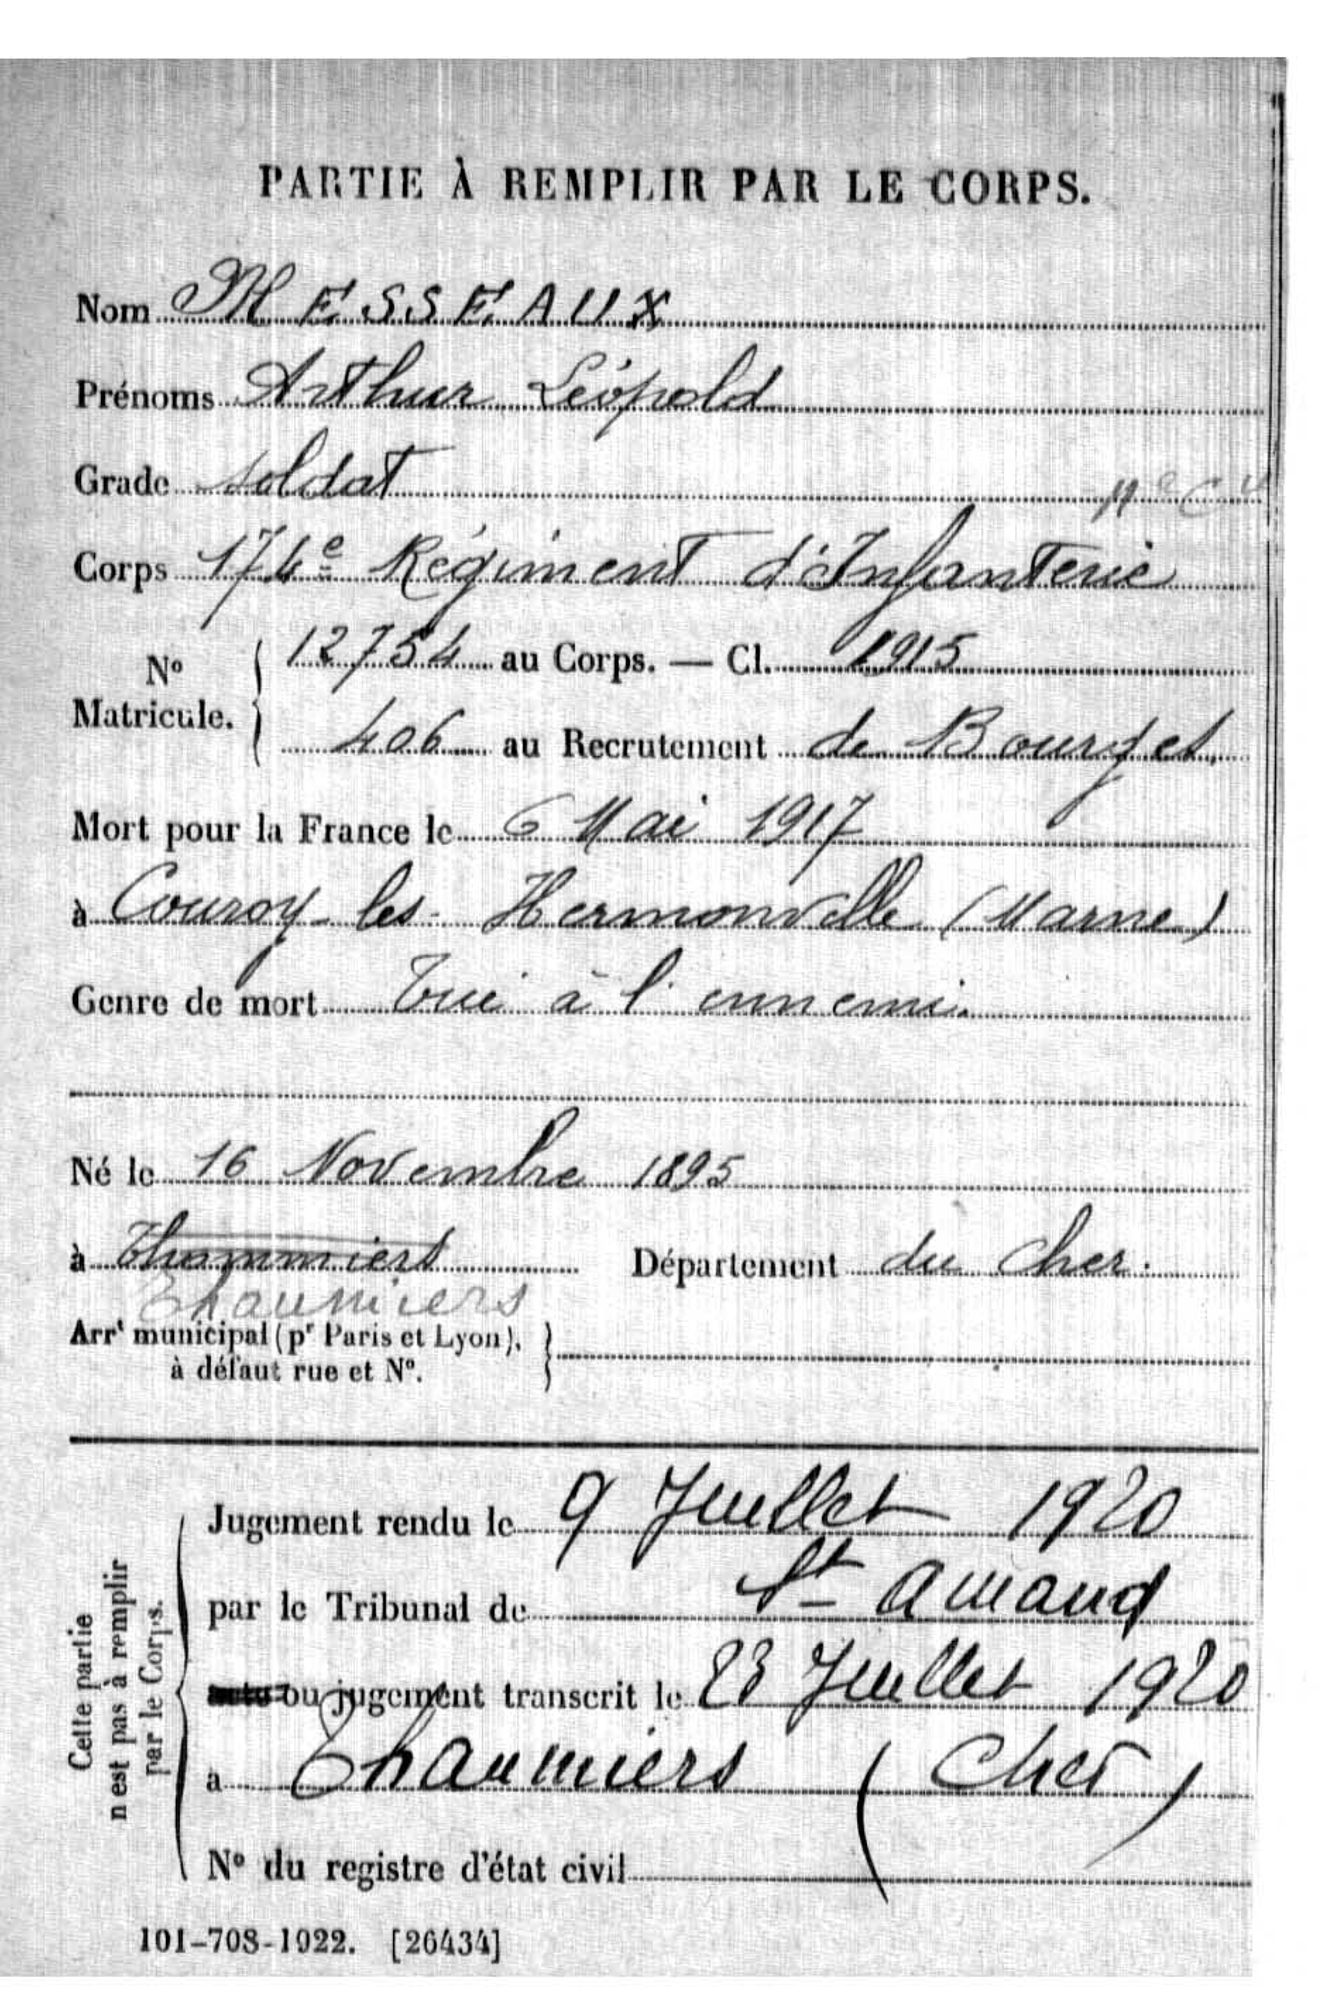 PARTIE À REMPLIR PAR LE CORPS.
Nom MESSEAUX
Prénoms Arthur Léopold
Grade soldat
Corps 174e Régiment d'Infanterie
No Matricule. 12754 au Corps. — Cl. 1915
406 au Recrutement de Bourges.
Mort pour la France le 6 Mai 1917
à Couroy-les-Hermonville (Marne)
Genre de mort Tué à l'ennemi.
Né le 16 Novembre 1895
à Thammiers Département du Cher.
Thaumiers
Arrt municipal (pr Paris et Lyon),
à défaut rue et No.
Cette partie
n'est pas à remplir
par le Corps.
Jugement rendu le 9 Juillet 1920
par le Tribunal de St Amand
acte ou jugement transcrit le 23 Juillet 1920
à Thaumiers (Cher)
No du registre d'état civil
101-708-1922. [26434]